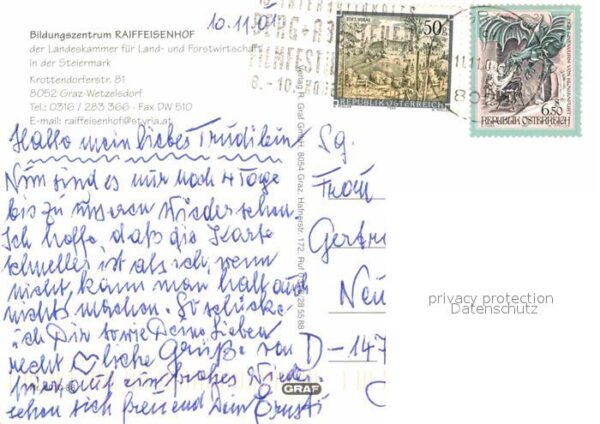 10.11.01
Bildungszentrum RAIFFEISENHOF
der Landeskammer für Land- und Forstwirtschaft
in der Steiermark
Krottendorferstr. 81
8052 Graz-Wetzelsdorf
Tel.: 0316 / 283 366 · Fax DW 510
E-mail: raiffeisenhof@styria.at
Hallo mein liebes Trudilein
Nun sind es nur noch 4 Tage
bis zu unserem Wiedersehen.
Ich hoffe, daß die Karte
schneller ist als ich, wenn
nicht, kann man halt auch
nichts machen. So schicke
ich Dir sowie Deine Lieben
recht ♡liche Grüße von
hier auf ein frohes Wieder
sehen sich freuend Dein Ernsti
Verlag R. Graf GmbH, 8054 Graz, Hafnerstr. 172, Ruf 28 55 88
GRAF
BERG+A
FILMFESTI
8.-10.
STIFT VORAU
50g
REPUBLIK ÖSTERREICH
6.50
REPUBLIK ÖSTERREICH
Sg.
Frau
Gertr
Neu
D-147
privacy protection
Datenschutz